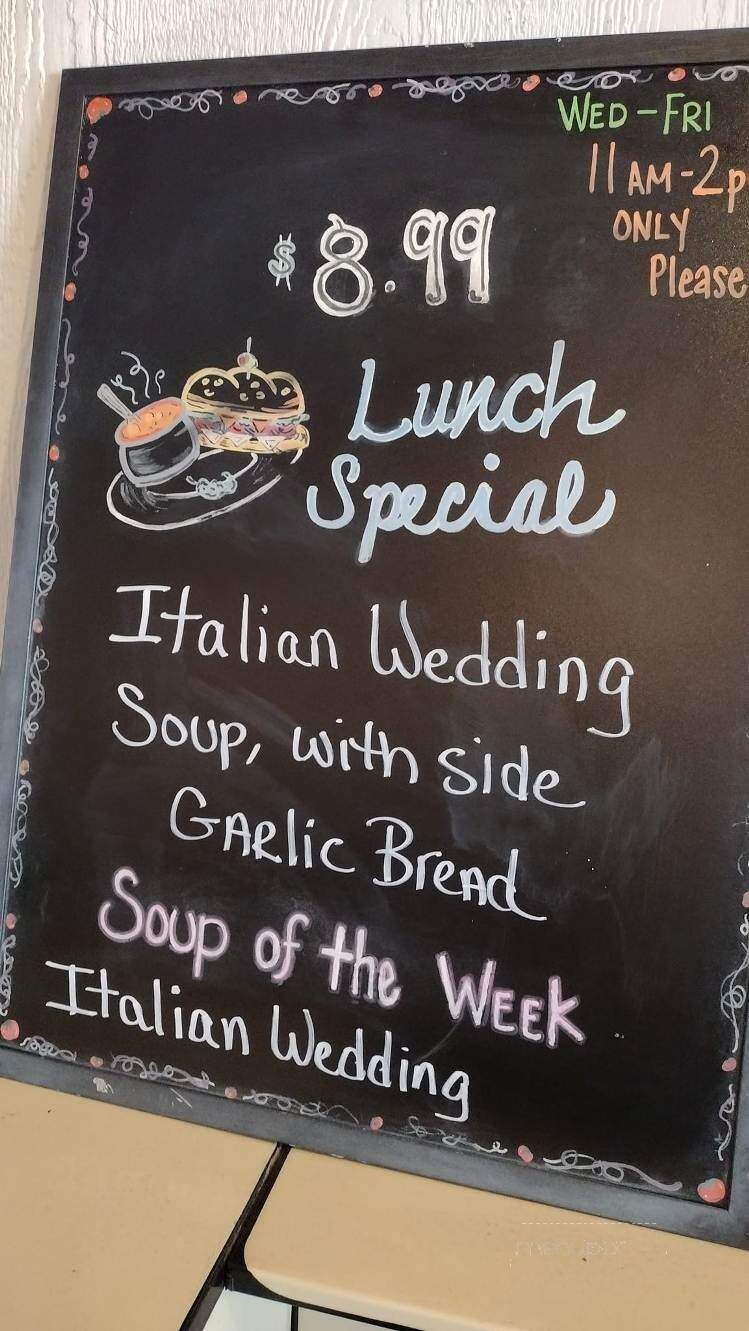 WED-FRI
11AM-2p
ONLY
Please
$8.99
Lunch
Special
Italian Wedding
Soup, with side
GARlic BreAd
Soup of the WEEK
Italian Wedding